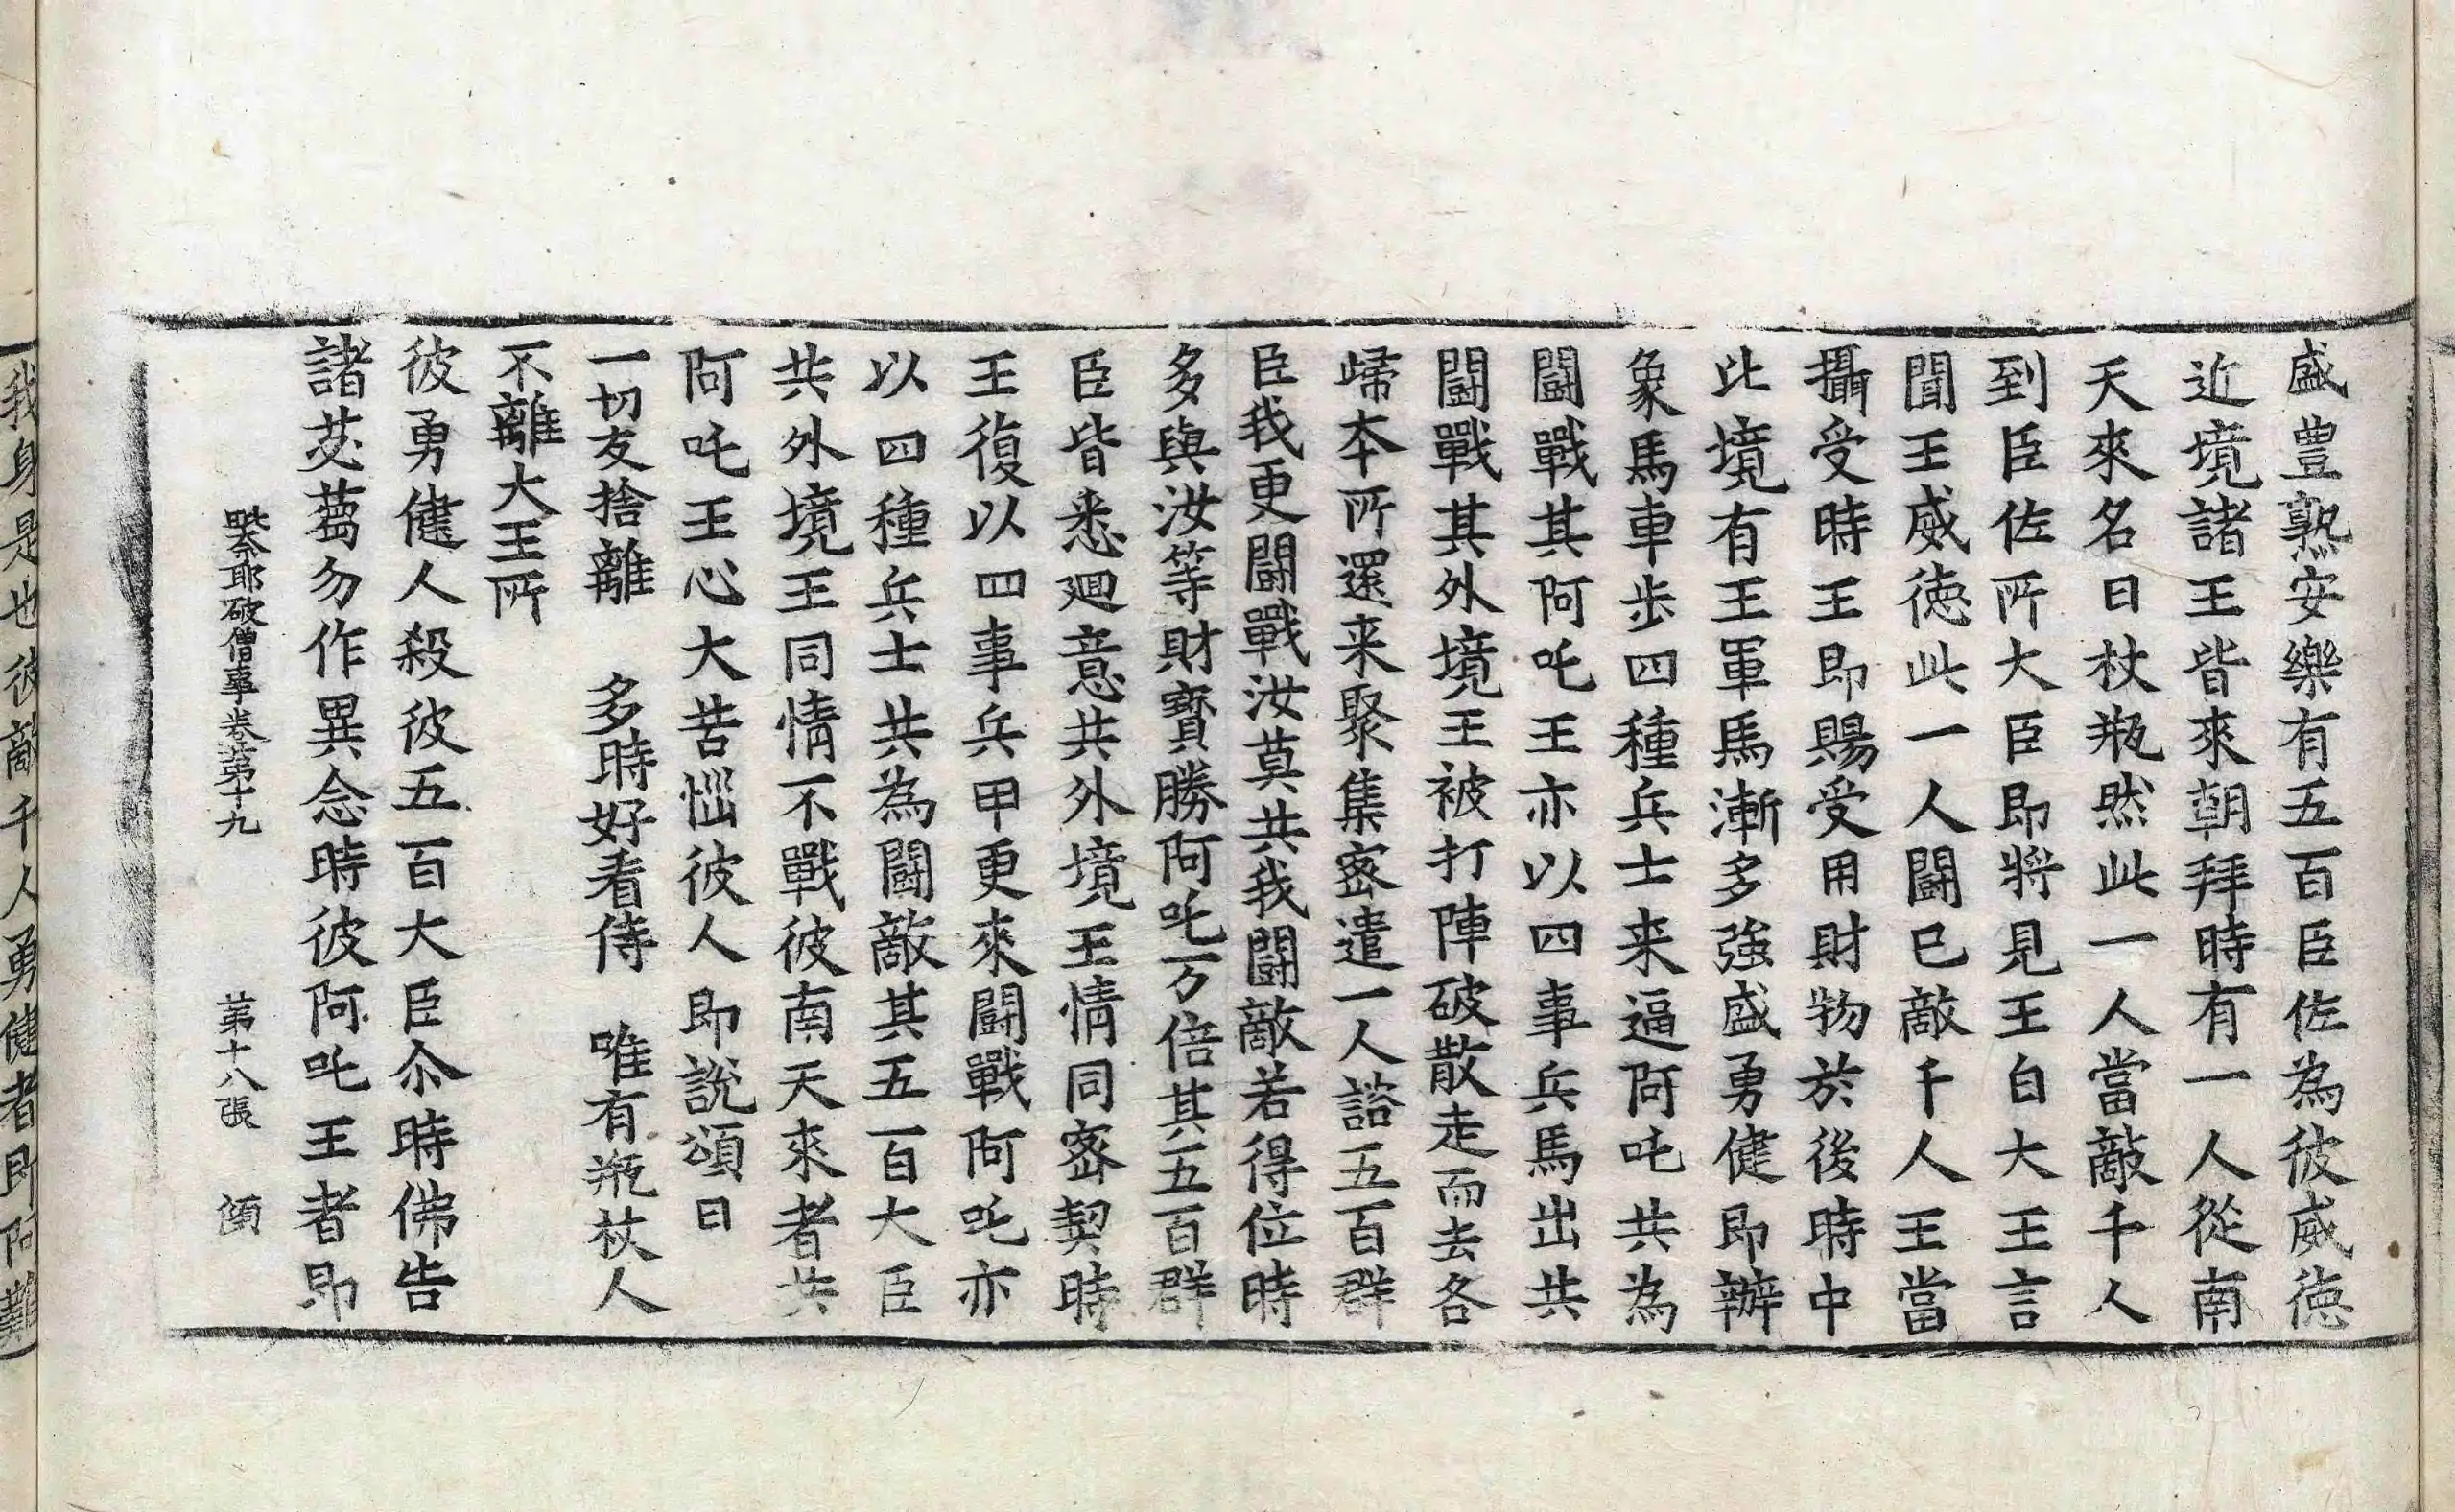 盛豊熟安樂有五百臣佐為彼威徳
近境諸王皆來朝拜時有一人從南
天來名曰杖瓶然此一人當敵千人
到臣佐所大臣即將見王白大王言
聞王威徳此一人闘已敵千人王當
攝受時王即賜受用財物於後時中
此境有王軍馬漸多強盛勇健即辦
象馬車步四種兵士来逼阿吒共為
闘戰其阿吒王亦以四事兵馬出共
闘戰其外境王被打陣破散走而去各
歸本所還来聚集密遣一人諮五百群
臣我更闘戰汝莫共我闘敵若得位時
多與汝等財寳勝阿吒一万倍其五百群
臣皆悉迴意共外境王情同密契時
王復以四事兵甲更來闘戰阿吒亦
以四種兵士共為闘敵其五百大臣
共外境王同情不戰彼南天來者共
阿吒王心大苦惱彼人即說頌曰
一切友捨離　多時好看侍　唯有瓶杖人
不離大王所
彼勇健人殺彼五百大臣尒時佛告
諸苾蒭勿作異念時彼阿吒王者即
毗奈耶破僧事卷第十九　第十八張
我身是也彼敵千人勇健者即阿難